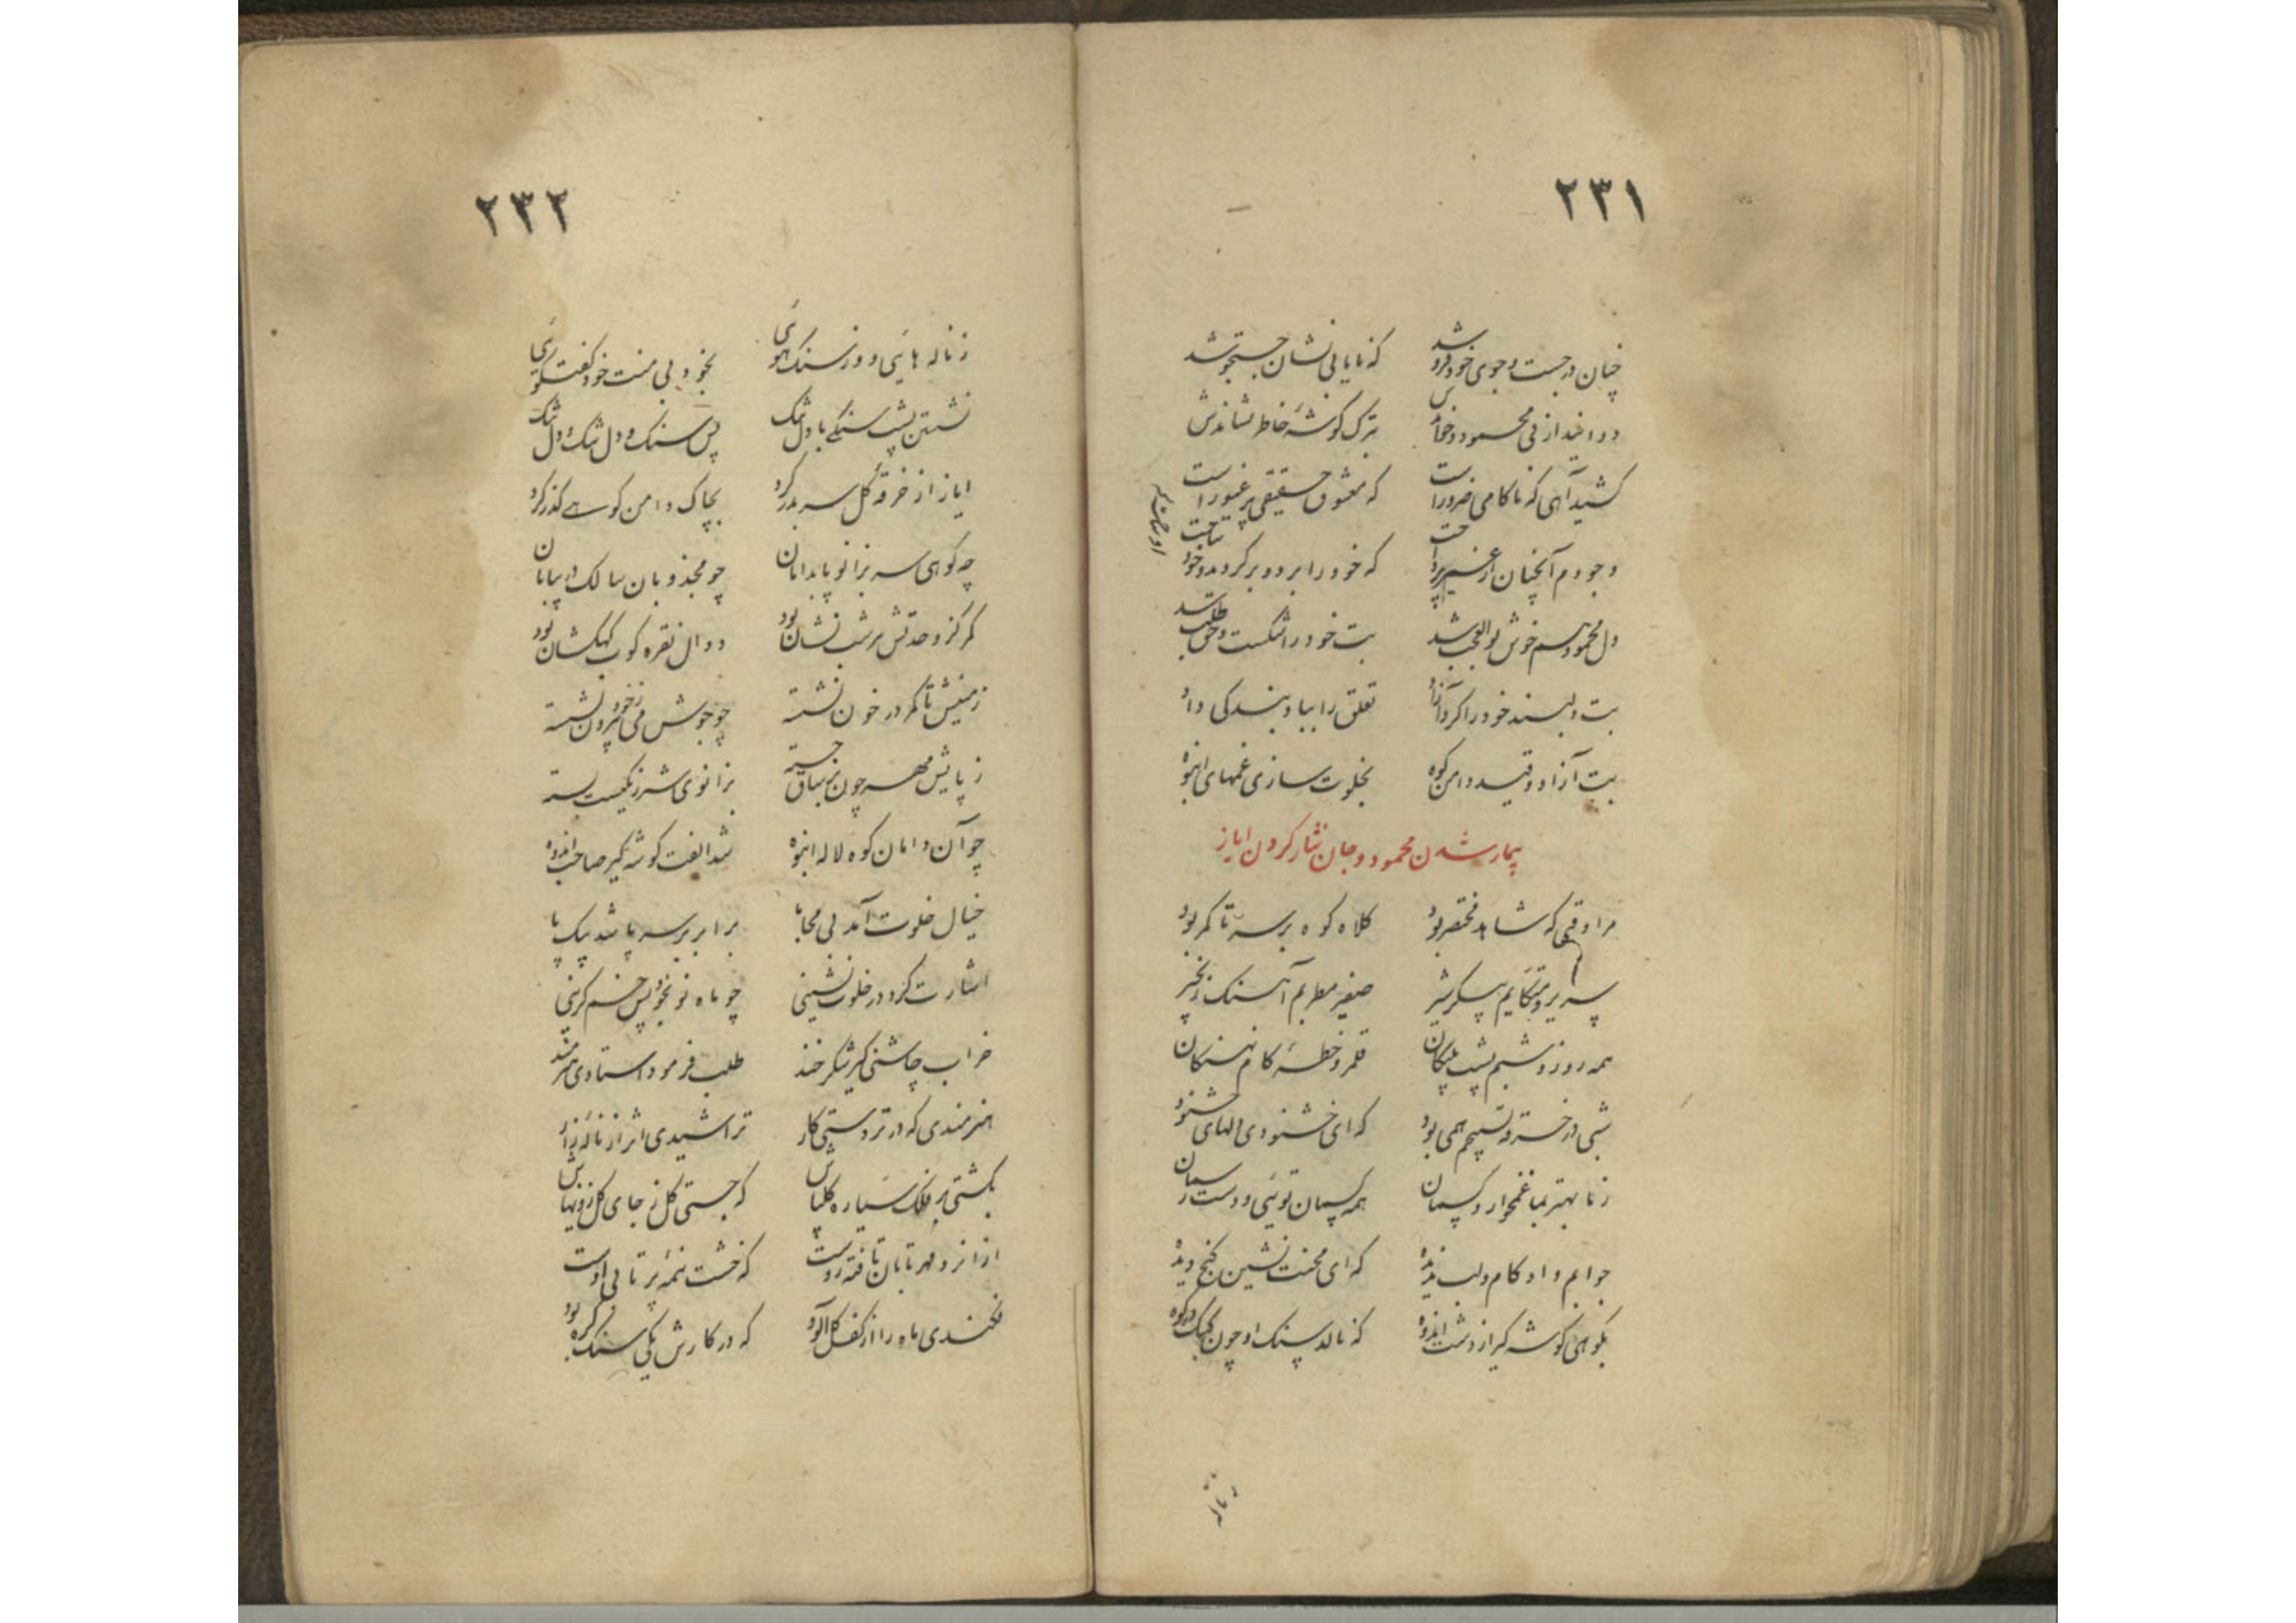 ۲۳۱
چنان در جست و جوی خود فرو شد که نایابی نشان جستجو شد
دواند از پی محمود و خواندش بترک گوشهٔ خاطر نشاندش
کشید آهی که ناکامی ضرور است که معشوق حقیقی پر غیور است
وجودم آنچنان از غیر پرداخت که خود را برد و بر گرد خود تاخت
دل محمود هم خوش بوالعجب شد بت خود را شکست و حق طلب شد
بت دلبند خود را کرد آزاد تعلق را بباد بندگی داد
بت آزاد و قید دامن کوه بخلوت سازی غمهای انبوه
بیمار شدن محمود و جان نثار کردن ایاز
مرا وقتی که شاهد مختصر بود کلاه کوه بر سر تا کمر بود
سریر و متکایم پیکر شیر صفیر مطربم آهنگ زنجیر
همه روز و شبم پشت پلنگان قلمرو خطهٔ کام نهنگان
شبی در خرقه تسبیحم همی بود که ای خشنودی الهای خشنود
ز ما بهتر بما غمخوار و کسمان همه کسمان توئی و دست رسمان
جوابم داد کام و لب ندیده که ای محنت نشین گنج دیده
بکوهی گوشه گیر از دشت اندوه که نالد سنگ او چون کبک در کوه
۲۳۲
ز ناله هائی و وز سنگ هوئی بخود بی منت خود گفتگوئی
نشستن پشت سنگی با دل تنگ پس سنگ و دل تنگ و دل تنگ
ایاز از خرقهٔ گل سر بدر کرد بچاک دامن کوهی گذر کرد
چه کوهی سر بزانو پا بدامان چو مجذوبان سالک در بیابان
کمر کز وحدتش بر شب نشان بود دوال نقره کوب کهکشان بود
زمینش تا کمر در خون نشسته چو جوش می ز خود بیرون نشسته
ز پایش مهر چون بر ساق جسته بزانوی شرر نگیست بسته
چو آن دامان کوه لاله انبوه شد الفت گوشه گیر صاحب اندوه
خیال خلوت آمد بی محابا برابر بر سر پا شد بیک پا
اشارت کرد در خلوت نشینی چو ماه نو بخود پس خم گزینی
خراب چاشنی گیر شکر خند طلب فرمود استادی هنرمند
هنرمندی که در تردستی کار تراشیدی اثر از نالهٔ زار
بکشتی بر فلک سیاره گلپاش که جستی گل ز جای گل ز دنیاش
از آنرو مهر تابان تافته روست که خشت نیمهٔ پرتابی اوست
فکندی ماه را از کف گل آلود که در کارش یکی سنگ گره بود